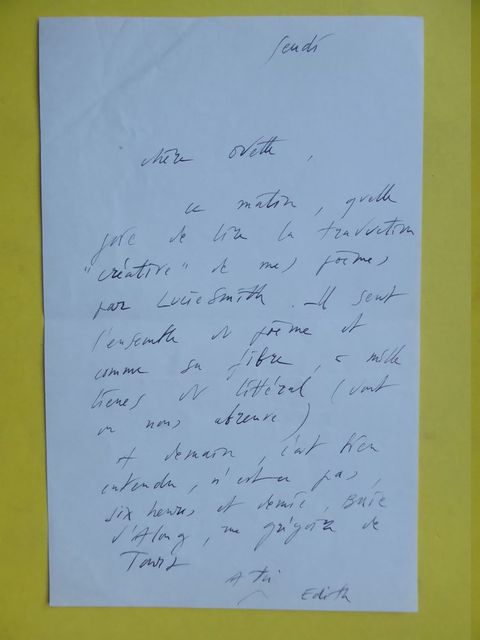 Jeudi
chère Odette,
ce matin, quelle
joie de lire la traduction
"créative" de mes poèmes
par Lucie Smith. Il sent
l'ensemble du poème et
comme sa fibre, à mille
lieues du littéral (dont
on nous abreuve)
A demain, c'est bien
entendu, n'est ce pas,
six heures et demie, Baie
d'Along, rue Grégoire de
Tours
A toi
Edith